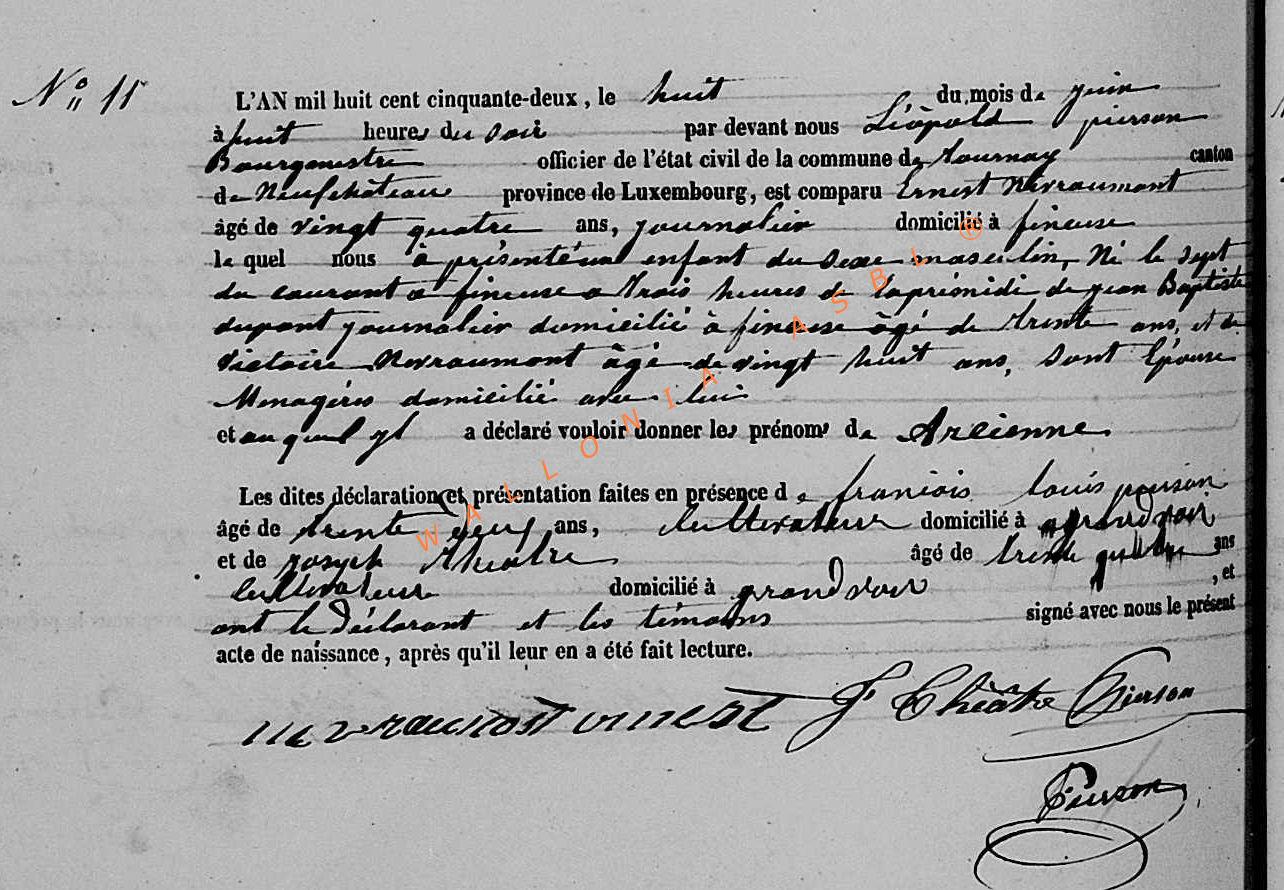 N° 11
L'AN mil huit cent cinquante-deux, le huit du mois de juin
à huit heures du soir par devant nous Léôpold pierson
Bourgmestre officier de l'état civil de la commune de tournay canton
de Neufchâteau province de Luxembourg, est comparu Ernest Nevraumont
âgé de vingt quatre ans, journalier domicilié à fineuse
le quel nous à présenté un enfant du sexe masculin, Né le sept
du courant a fineuse a trois heures de l'aprémidi de jean Baptiste
dupont journalier domicilié à fineuse âgé de trente ans, et de
victoire Nevraumont âgé de vingt huit ans, sont Epouse
Menagères domicilié avec lui
et auquel yl a déclaré vouloir donner les prénoms de Arcienne
Les dites déclaration et présentation faites en présence de franiois louis pierson
âgé de trente ans, cultivateur domicilié à grandvoir
et de joseph theatre âgé de trente quatre ans
cultivateur domicilié à grandvoir , et
ont le déclarant et les témoins signé avec nous le présent
acte de naissance, après qu'il leur en a été fait lecture.
nevraumont ernest J. Théâtre Pierson
Pierson
WALLONIA ASBL ®